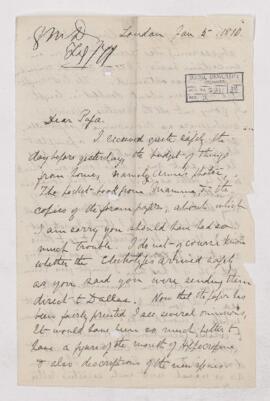 London Jan 5th 1890.
Dear Papa.
I received quite safely the
day before yesterday, the budget of things
from home, namely
The pocket-book from Mamma, & the
copies of the forum paper, about which
I am sorry you should have had so
much trouble. I do not of course know
whether the Electrotypes arrived safely
as you said you were sending them
direct to Dallas. Now that the paper has
been fairly printed I see several omissions,
It would have been so much better to
have a figure of the mouth of
& also descriptions of the new species